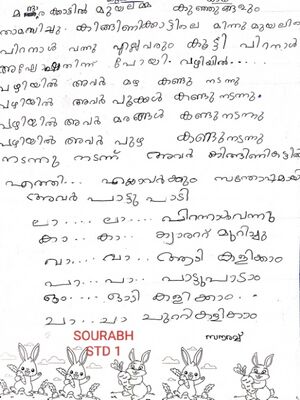 മഞ്ഞക്കാട്ടിൽ മുയലമ്മ കുഞ്ഞുങ്ങളും
താമസിച്ചു. കിങ്ങിണികാട്ടിലെ മിന്നു മുയലിന്റെ
പിറന്നാൾ വന്നു എല്ലാവരും കൂട്ടി പിറന്നാൾ
പോയി. വഴിയിൽ......
വഴിയിൽ അവർ മഴ കണ്ടു നടന്നു
വഴിയിൽ അവർ പൂക്കൾ കണ്ടു നടന്നു.
വഴിയിൽ അവർ മരങ്ങൾ കണ്ടു നടന്നു
വഴിയിൽ അവർ പുഴ കണ്ടു നടന്നു
നടന്നു നടന്ന് അവർ കിങ്ങിണികാട്ടിൽ
എത്തി... എല്ലാവർക്കും സന്തോഷമായി
അവർ പാട്ടു പാടി
ലാ.... ലാ.... പിറന്നാൾവന്നു
കാ.. കാ.. ക്യാരറ്റ് മുറിച്ചു
വാ... വാ.. ആടി കളിക്കാം
പാ... പാ.. പാട്ടുപാടാം
ഓം.... ഓടി കളിക്കാം..
ചാ.. ചാ ചാടികളിക്കാം
SOURABH
STD 1
സൗരഭ്